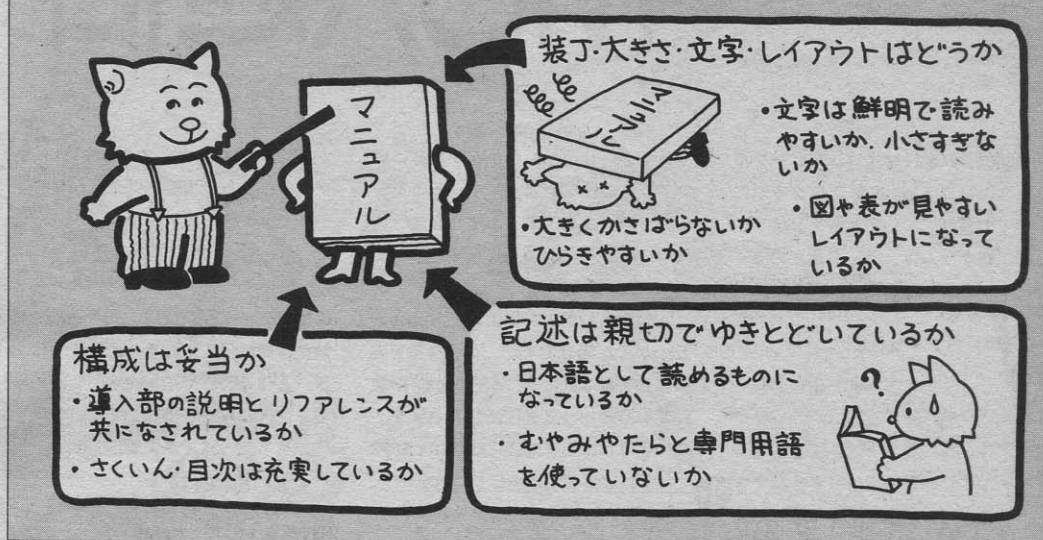 マニュアル
装丁・大きさ・文字・レイアウトはどうか
マニュアル
・文字は鮮明で読み
やすいか、小さすぎな
いか
・大きくかさばらないか
ひらきやすいか
・図や表が見やすい
レイアウトになって
いるか
構成は妥当か
・導入部の説明とリファレンスが
共になされているか
・さくいん・目次は充実しているか
記述は親切でゆきとどいているか
・日本語として読めるものに
なっているか
・むやみやたらと専門用語
を使っていないか
?